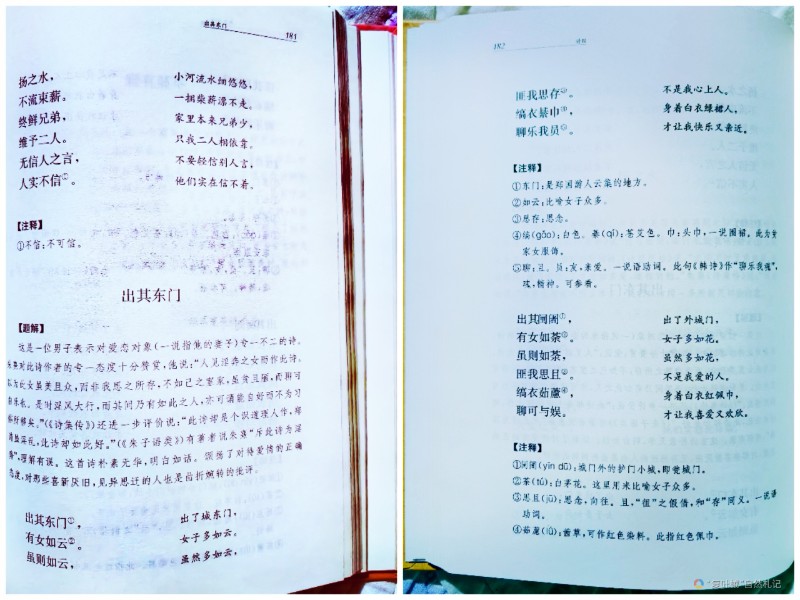 出其东门 181
扬之水， 小河流水细悠悠，
不流束薪。 一捆柴薪漂不走。
终鲜兄弟， 家里本来兄弟少，
维予二人。 只我二人相依靠。
无信人之言， 不要轻信别人言，
人实不信①。 他们实在信不着。
【注释】
①不信：不可信。
出其东门
【题解】
这是一位男子表示对爱恋对象（一说指他的妻子）专一不二的诗。
朱熹对此诗作者的专一态度十分赞赏，他说：“人见淫奔之女而作此诗。
以为此女虽美且众，而非我思之所存，不如己之室家，虽贫且陋，而聊可
自乐也。是时淫风大行，而其间乃有如此之人，亦可谓能自好而不为习
俗所移矣。”（《诗集传》）还进一步评价说：“此诗却是个识道理人作，郑
诗虽淫乱，此诗却如此好。”（《朱子语类》）有著者说朱熹“斥此诗为淫
，理解有误。这首诗朴素无华，明白如话。颂扬了对待爱情的正确
态度，对那些喜新厌旧，见异思迁的人也是曲折婉转的批评。
出其东门①， 出了城东门，
有女如云②。 女子多如云。
虽则如云， 虽然多如云，
182 诗经
匪我思存③。 不是我心上人。
缟衣綦巾④， 身着白衣绿裙人，
聊乐我员⑤。 才让我快乐又亲近。
【注释】
①东门：是郑国游人云集的地方。
②如云：比喻女子众多。
③思存：思念。
④缟（gǎo）：白色。綦（qí）：苍艾色。巾：头巾，一说围裙。此为贫
家女服饰。
⑤聊：且。员：友，亲爱。一说语助词。此句《韩诗》作“聊乐我魂”，
魂，精神。可参看。
出其闉闍①， 出了外城门，
有女如荼②。 女子多如花，
虽则如荼， 虽然多如花，
匪我思且③。 不是我爱的人。
缟衣茹藘④， 身着白衣红佩巾，
聊可与娱。 才让我喜爱又欢欣。
【注释】
①闉闍（yīn dū）：城门外的护门小城，即瓮城门。
②荼（tú）：白茅花。这里用来比喻女子众多。
③思且（jū）：思念，向往。且，“徂”之假借，和“存”同义。一说语
助词。
④茹藘（lǘ）：茜草，可作红色染料。此指红色佩巾。
自然札记